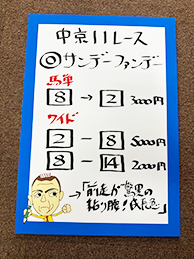 中京11レース
◎サンデーファンデー
馬単
8 → 2 3000円
ワイド
2 - 8 5000円
8 - 14 2000円
→「前走が驚異の
粘り腰!